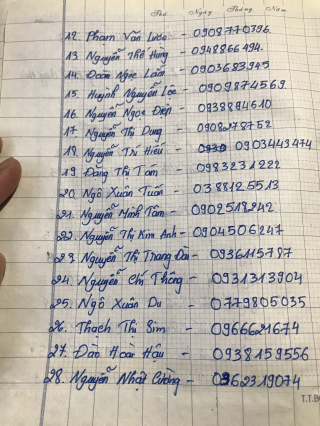 Thứ Ngày Tháng Năm
12. Phạm Văn Lước - 0908770396
13. Nguyễn Thế Hùng - 0948866494.
14. Đoàn Ngọc Lâm - 0903683945
15. Huỳnh Nguyễn Lộc - 0909874569
16. Nguyễn Ngọc Điệp - 0938894610
17. Nguyễn Thị Dung - 0908278752
18. Nguyễn Trí Hiếu - 0903443474
19. Đặng Thị Tam - 0983231222
20. Ngô Xuân Tuấn - 038125513
21. Nguyễn Minh Tâm - 0902518242
22. Nguyễn Thị Kim Anh - 0904506247
23. Nguyễn Thị Trang Đài - 0936115787
24. Nguyễn Chí Thông - 0931313904
25. Ngô Xuân Du - 0779805035
26. Thạch Thị Sim - 0966621674
27. Đào Hoài Hậu - 0938159556
28. Nguyễn Nhật Cường - 0962319074